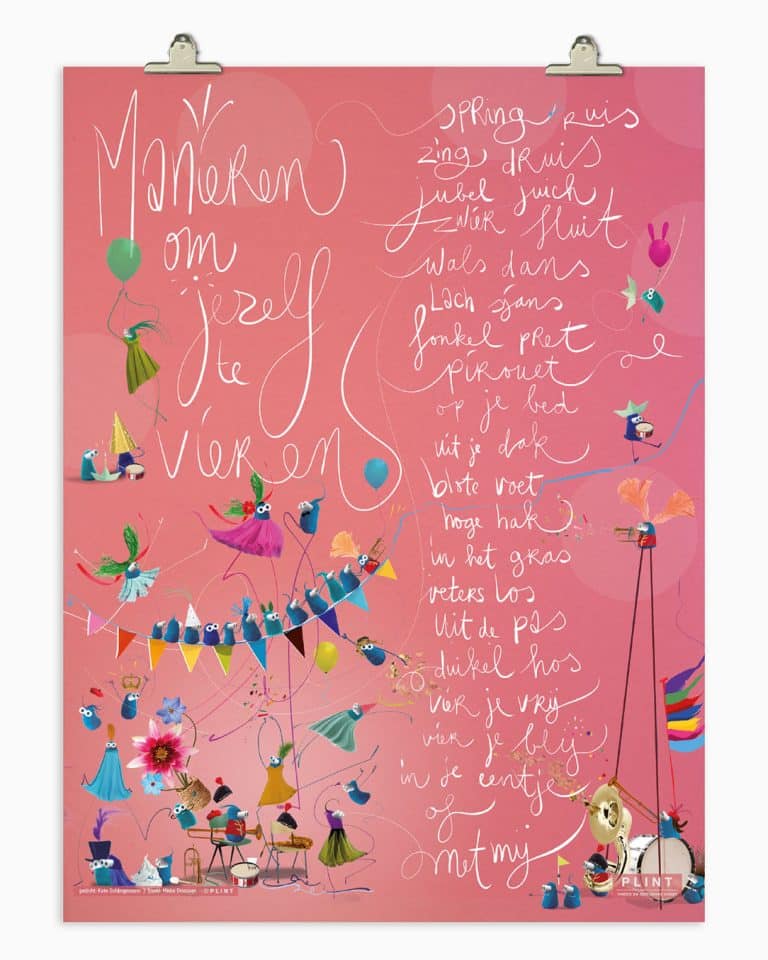 Manieren
om
jezelf
te
vieren
spring ruis
zing druis
jubel juich
zwier fluit
wals dans
Lach sjans
fonkel pret
pirouet
op je bed
uit je dak
blote voet
hoge hak
in het gras
veters los
Uit de pas
duikel hos
vier je vrij
vier je blij
in je eentje
of
met mij
gedicht: Kate Schlingemann
PLINT
PLINT